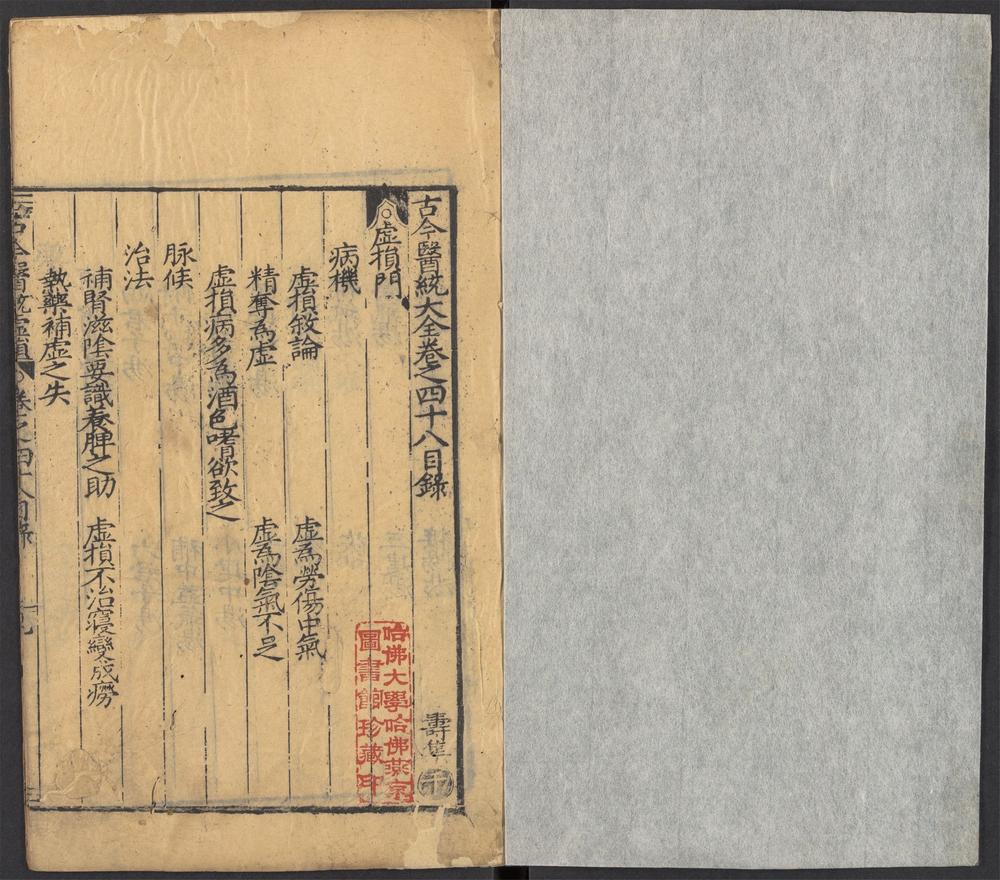 古今醫統大全卷之四十八目錄
壽隼
虛損門
病機
虛損敘論 虛為勞傷中氣
精奪為虛 虛為陰氣不足
虛損病多為酒色嗜欲致之
脉候
治法
補腎滋陰要識養脾之助 虛損不治寖變成癆
執藥補虛之失
古今醫統虛損 卷之四十八目錄
哈佛大學哈佛燕京
圖書館珍藏印